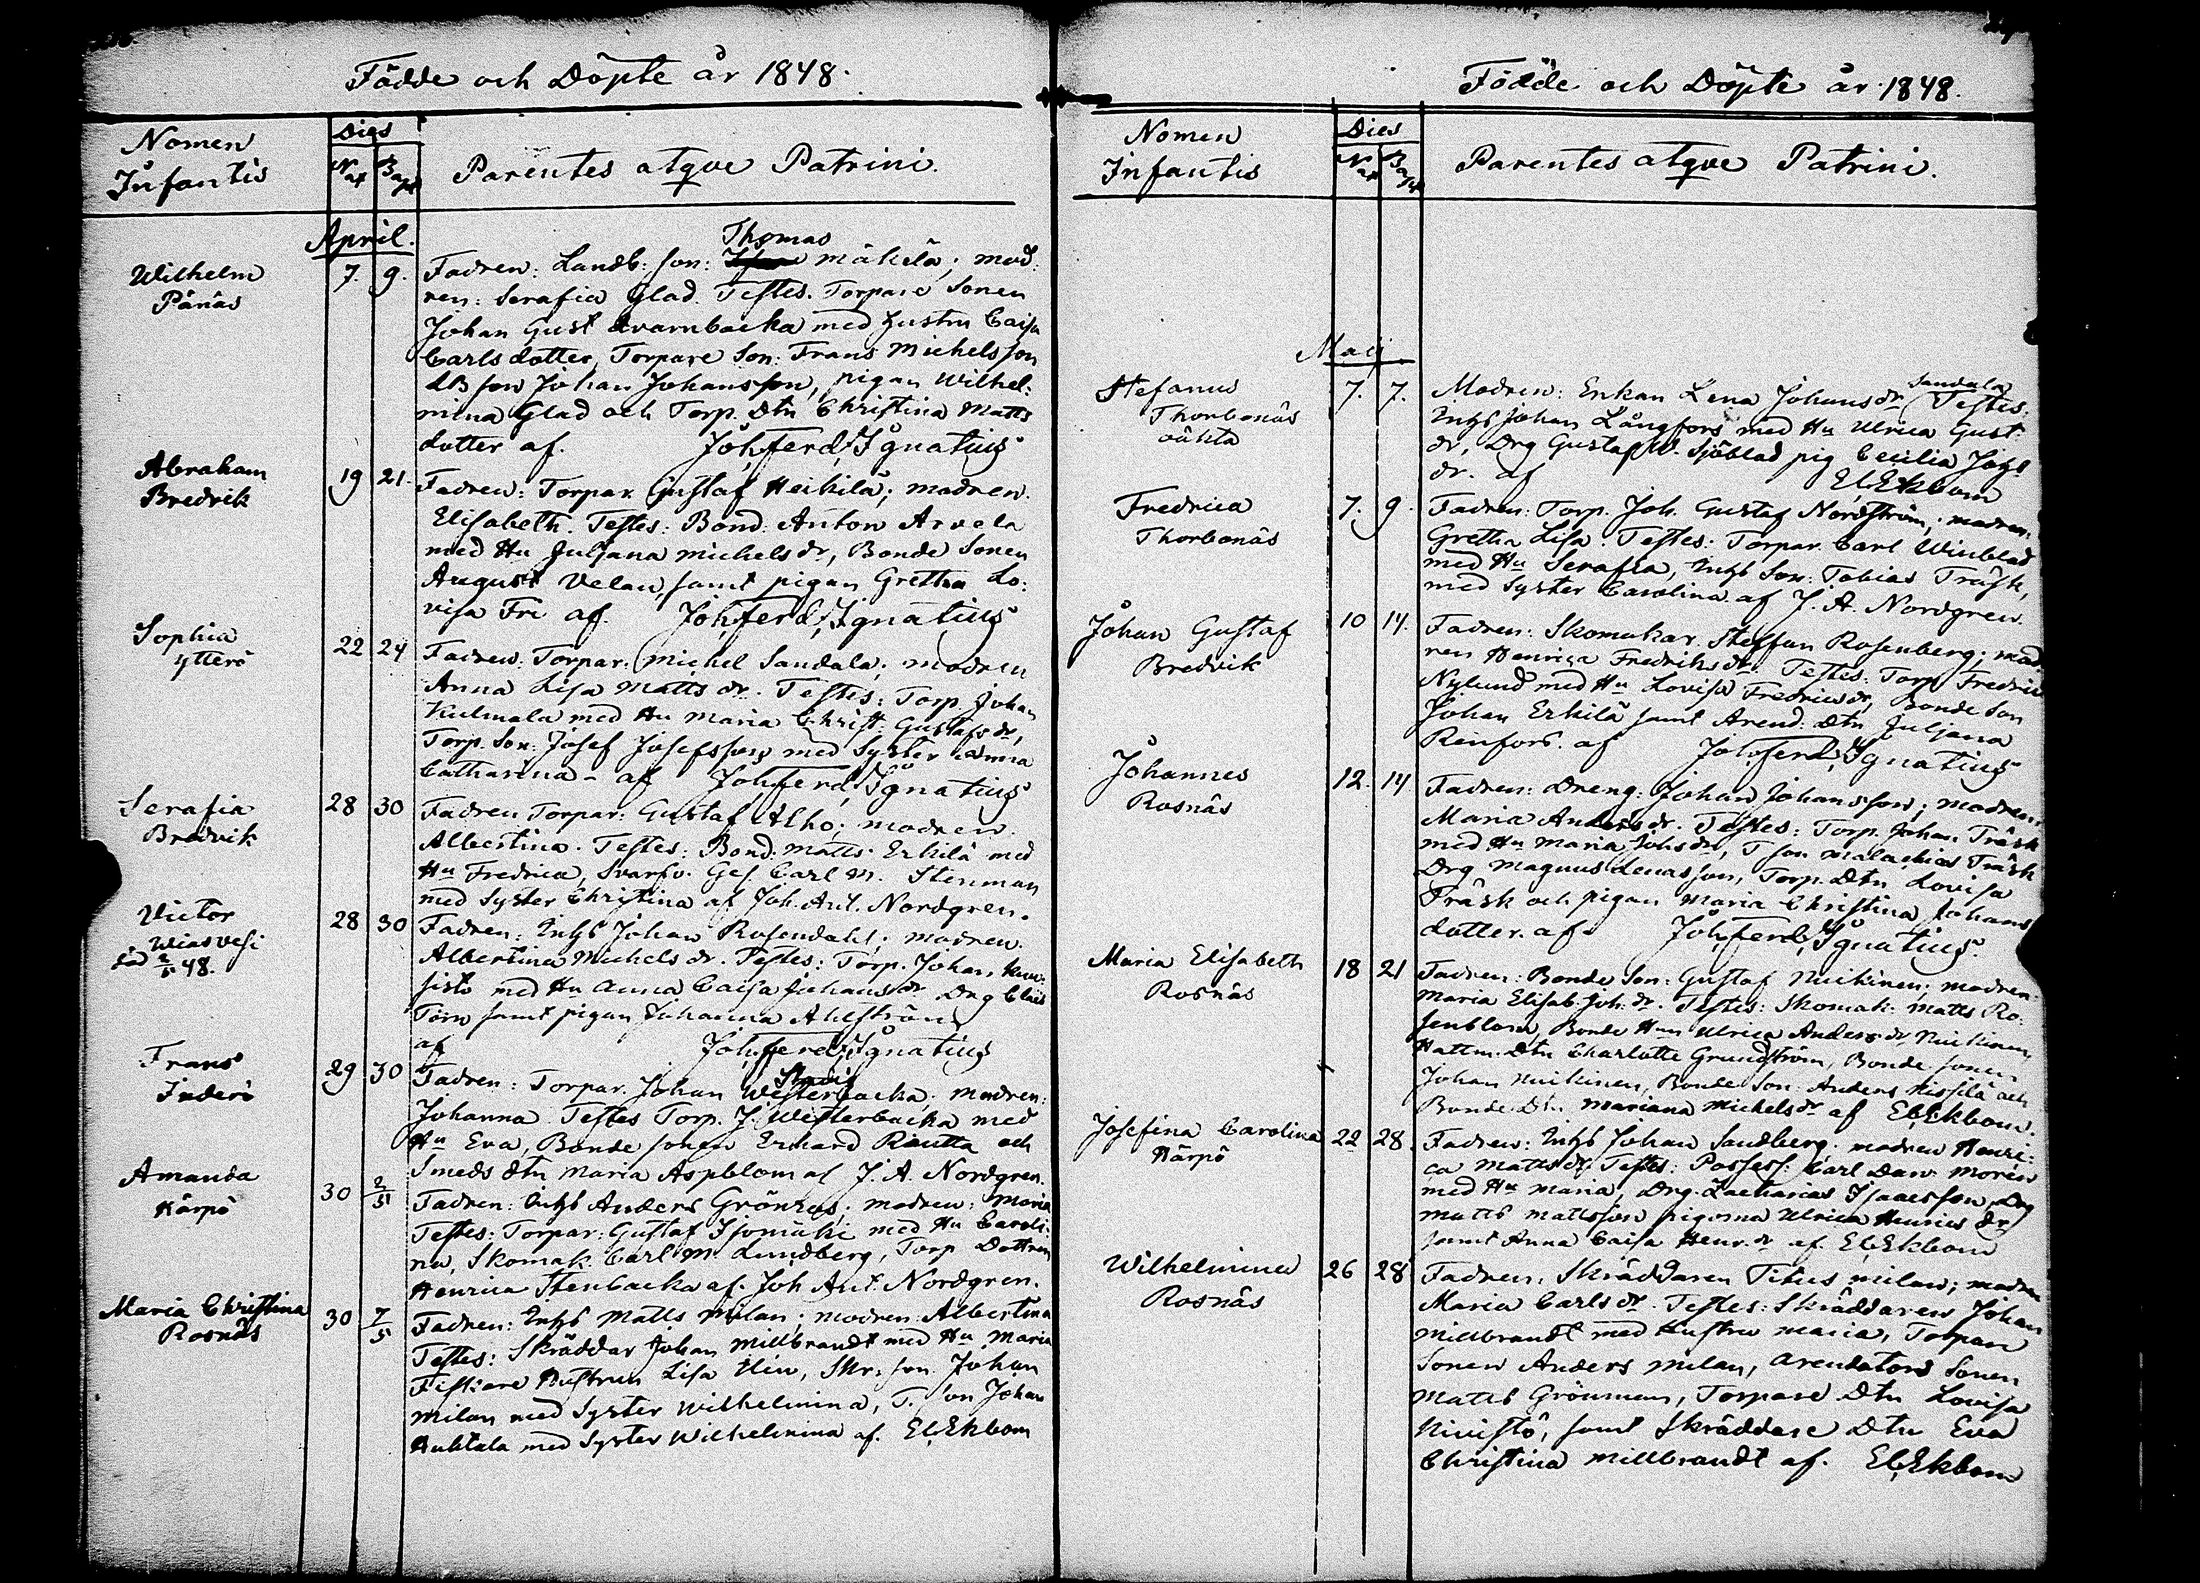 Födde och Döpte år 1848.
Nomen
Infantis
Dies
Nat
Bapt
Parentes atqve Patrini.
April.
Wilhelm
Pänäs
7. 9.
Thomas
Fadren: Landb: son: Mäkelä; mod:
ren: Serafia Glad. Testes. Torpare Sonen
Johan Gust Qvarnbacka med hustru Caisa
Carls dotter, Torpare Son: Frans Michelsson
LB son Johan Johansson, pigan Wilhel:
mina Glad och Torp. Dtn Christina Matts
dotter af. Joh. Ferd. Ignatius
Abraham
Bredvik
19 21.
Fadren: Torpar. Gustaf Heikilä; modren.
Elisabeth. Testes: Bond: Anton Arvela
med Hu Juljana Michels dr, Bonde Sonen
August Velan, samt pigan Gretha Lo:
visa Fri af. Joh. Ferd. Ignatius
Sophia
Ytterö
22 24
Fadren: Torpar: Michel Sandala; modren
Anna Lisa Matts dr. Testes: Torp. Johan
Kulmala med Hu Maria Christ. Gustafs dr,
Torp. Son: Josef Josefsson med Syster Anna
Catharina - af Joh. Ferd. Ignatius
Serafia
Bredvik
28 30
Fadren Torpar: Gustaf Alho; modren.
Albertina. Testes: Bond. Matts Erkilä med
Hu Fredrica, Svarfv. Ges. Carl M. Stenman
med Syster Christina af Joh. Ant. Nordgren.
Victor
Wiasvesi
död 2/5 48.
28 30
Fadren: Inhs Johan Rosendahl; modren.
Albertina Michels dr. Testes: Torp. Johan Kuu:
sisto med Hu Anna Caisa Johans dr Drg
Törn samt pigan Johanna Ahlström
af Joh. Ferd. Ignatius
Frans
Inderö
29 30
Fadren: Torpar. Johan Westerbacka; modren:
Johanna. Testes Torp. J. Westerbacka med
Hu Eva, Bonde sonen Erhard Rautta och
Smeds dtn Maria Aspblom af J. A. Nordgren.
Amanda
Kärpö
30 2/5
Fadren: Inhs Anders Grönros; modren: Maria
Testes: Torpar: Gustaf Isomäki med Hu Caroli:
na, Skomak. Carl M. Lundberg, Torp Dottren
Henrica Stenbacka af. Joh Ant. Nordgren.
Maria Christina
Rosnäs
30 7/5
Fadren: Inhs Matts Milan; modren: Albertina
Testes: Skräddar Johan Millbrandt med Hu Maria
Fiskare Hustrun Lisa, Skr: son. Johan
Milan med Syster Wilhelmina, T. son Johan
Huhtala med Syster Wilhelmina af. El. Ekbom
Födde och Döpte år 1848.
Nomen
Infantis
Dies
Nat
Bapt
Parentes atqve Patrini.
Maij
Stefanus
Thorbonäs
oäkta
7. 7.
Sandala
Modren: Enkan Lena Johans dr Testes:
Inhs Johan Långfors med Hu Ulrica Gust:
dr, Drg Gustaf W. Sjöblad pig Cecilia Johs
dr. af El. Ekbom
Fredrica
Thorbonäs
7. 9.
Fadren: Torp. Joh. Gustaf Nordström; modren:
Gretha Lisa. Testes: Torpar. Carl Winblad
med Hu Serafia, Inhs Son: Tobias Träsk,
med Syster Carolina. af J. A. Nordgren.
Johan Gustaf
Bredvik
10 14.
Fadren: Skomakar. Steffan Rosenberg; mod:
ren Henrica Fredriks dr. Testes: Torp. Fredric
Nylund med Hu Lovisa Fredrics dr, Bonde Son
Johan Erkilä samt Arend: Dtn Juljana
Reinfors. af Joh. Ferd. Ignatius
Johannes
Rosnäs
12. 14
Fadren: Dreng: Johan Johansson; modren:
Maria Anders dr. Testes: Torp. Johan Träsk
med Hu Maria Johs dr, T son Malachias Träsk
Drg Magnus Lenasson, Torp. Dtn Lovisa
Träsk och pigan Maria Christina Johans
dotter. af. Joh. Ferd. Ignatius.
Maria Elisabeth
Rosnäs
18 21
Fadren: Bonde Son: Gustaf Nuikinen; modren:
Maria Elisab. Joh. dr. Testes: Skomak. Matts Ro:
senblom, Bonde Hun Ulrica Anders dr Nuikinen,
Hattm. Dtn Charlotte Grundström, Bonde sonen
Johan Nuikinen, Bonde Son: Anders Kissilä och
Bonde Dtn Mariana Michels dr af El. Ekbom.
Josefina Carolina
Kärpö
22 28.
Fadren: Inhs Johan Sandberg. modren Henri:
ca Matts dr Testes: Possess: Carl Dan: Morén
med Hu Maria, Drg. Zacharias Isaacsson, Drg
Matts Mattsson pigorna Ulrica Henrics dr
samt Anna Caisa Henr. dr af. El. Ekbom
Wilhelmina
Rosnäs
26 28
Fadren, Skräddaren Titus Milan; modren
Maria Carls dr. Testes: Skräddaren Johan
Millbrandt med Hustru Maria, Torpare
Sonen Anders Milan, Arendators Sonen
Matts Grönman, Torpare Dtn Lovisa
Nivistö, samt Skräddare Dtn Eva
Christina Millbrandt af. El. Ekbom